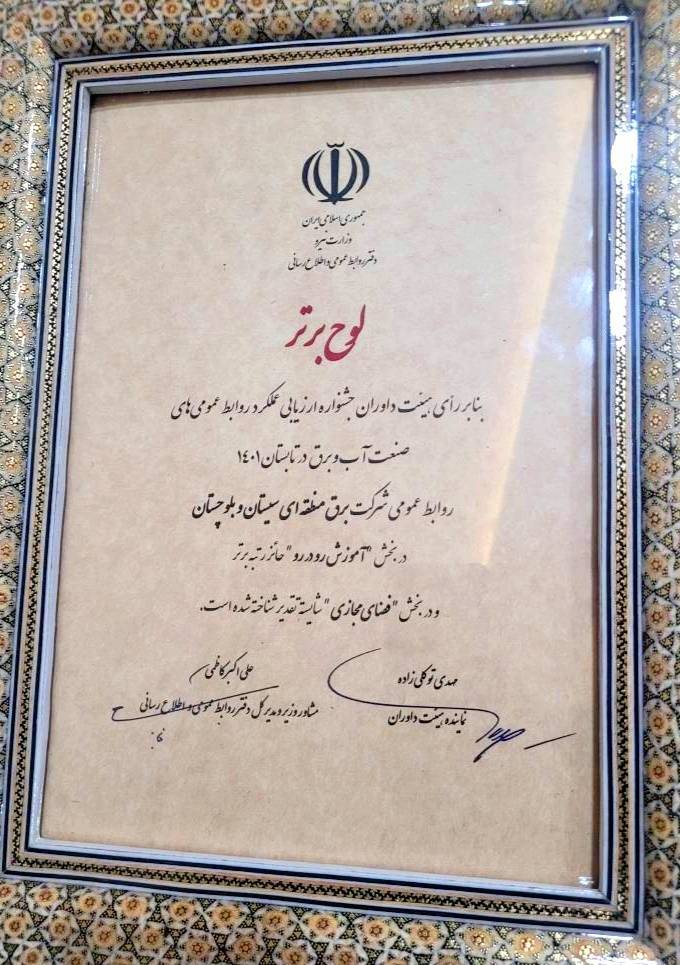 جمهوری اسلامی ایران
وزارت نیرو
دفتر روابط عمومی و اطلاع رسانی
لوح برتر
بنابر رأی هیئت داوران جشنواره ارزیابی عملکرد روابط عمومی های
صنعت آب و برق در تابستان ۱۴۰۱
روابط عمومی شرکت برق منطقه ای سیستان و بلوچستان
در بخش "آموزش رو در رو" حائز رتبه برتر
و در بخش "فضای مجازی" شایسته تقدیر شناخته شده است.
مهدی توکلی زاده
نماینده هیئت داوران
علی اکبر کاظمی
مشاور وزیر و مدیر کل دفتر روابط عمومی و اطلاع رسانی